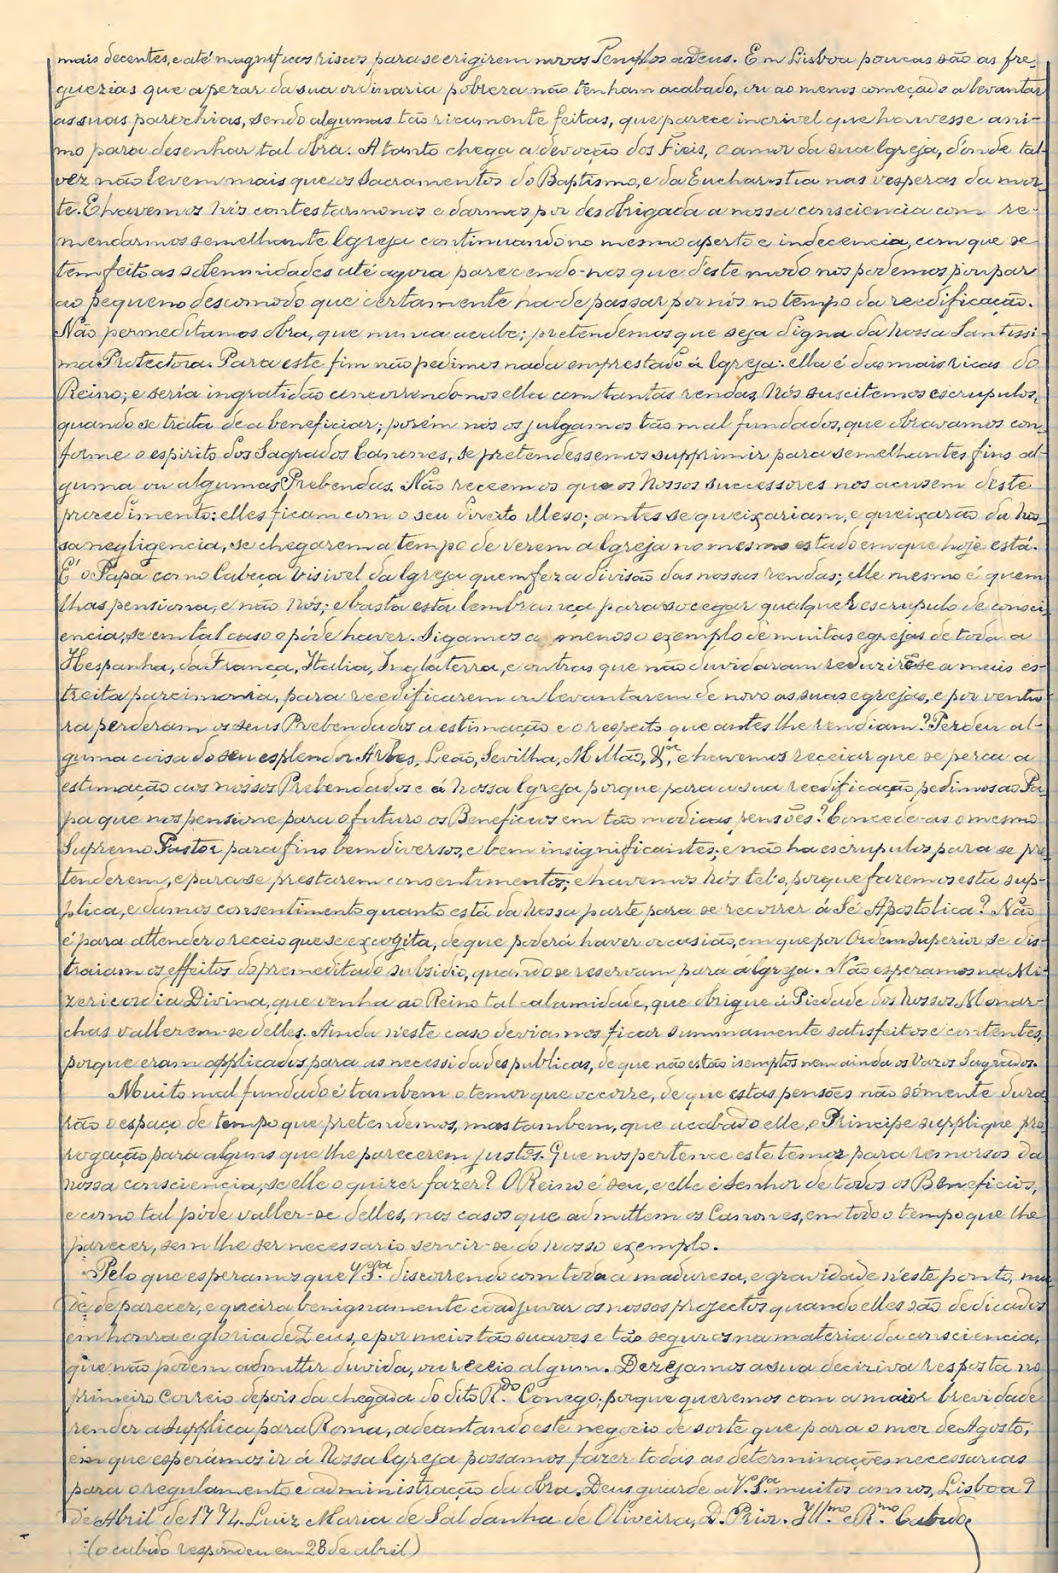 mais decentes, e até magnificos riscos para se erigirem novos Templos a Deus. Em Lisboa poucas são as fre-
guezias que apezar da sua ordinaria pobreza não tenham acabado, ou ao menos começado a levantar
as suas parochias, sendo algumas tão ricamente feitas, que parece incrivel que houvesse ani-
mo para desenhar tal obra. A tanto chega a devoção dos Fieis, o amor da sua Igreja, donde tal-
vez não levem mais que os Sacramentos do Baptismo, e da Eucharistia nas vesperas da mor-
te. E havemos Nós contestarmonos e darmos por desobrigada a nossa consciencia com re-
mendarmos semelhante Igreja continuando no mesmo aperto e indecencia, com que se
tem feito as solemnidades até agora parecendo-nos que d'este modo nos podemos poupar
ao pequeno descomodo que certamente ha-de passar por nós no tempo da reedificação.
Não permeditamos obra, que nunca acabe; pretendemos que seja digna da Nossa Santissi-
ma Protectora. Para este fim não pedimos nada emprestado á Igreja: ella é das mais ricas do
Reino; e seria ingratidão concorrendo-nos ella com tantas rendas, Nós suscitemos escrupulos,
quando se trata de a beneficiar; porém nós os julgamos tão mal fundados, que obravamos con-
forme o espirito dos Sagrados Canones, se pretendessemos supprimir para semelhantes fins al-
guma ou algumas Prebendas. Não receemos que os Nossos successores nos acusem d'este
procedimento: elles ficam com o seu direito illeso; antes se queixariam, e queixarão da Nos-
sa negligencia, se chegarem a tempo de verem a Igreja no mesmo estado em que hoje está.
É o Papa como Cabeça Visivel da Igreja quem fez a divisão das nossas rendas; elle mesmo é quem
lhas pensiona, e não Nós; e basta esta lembrança para socegar qualquer escrupulo de consci-
encia, se em tal caso o póde haver. Sigamos a menos o exemplo de muitas egrejas de toda a
Hespanha, da França, Italia, Inglaterra, e outras que não duvidaram reduzirem-se a mais es-
treita parcimonia, para reedificarem ou levantarem de novo as suas egrejas, e por ventu-
ra perderam os seus Prebendados a estimação e o respeito que antes lhe rendiam? Perdeu al-
guma coisa do seu esplendor Arles, Leão, Sevilha, Millão, &ª, e havemos receiar que se perca a
estimação aos nossos Prebendados e á Nossa Igreja porque para a sua reedificação pedimos ao Pa-
pa que nos pensione para o futuro os Beneficios em tão modicas pensões? Concede-as o mesmo
Supremo Pastor para fins bem diversos, e bem insignificantes; e não ha escrupulos para se pre-
tenderem, e para se prestarem consentimentos; e havemos Nós tel-o, porque fazemos esta sup-
plica, e damos consentimento quanto está da Nossa parte para se recorrer á Sé Apostolica? Não
é para attender o receio que se excogita, de que poderá haver occasião, em que por Ordem Superior se dis-
traiam os effeitos do premeditado subsidio, quando se reservam para a Igreja. Não esperamos na Mi-
zericordia Divina, que venha ao Reino tal calamidade, que obrigue á Piedade dos Nossos Monar-
chas vallerem-se delles. Ainda n'este caso deviamos ficar summamente satisfeitos e contentes,
porque eram applicados para as necessidades publicas, de que não estão isemptos nem ainda os Vazos Sagrados.
Muito mal fundado é tambem o temor que occorre, de que estas pensões não sómente dura-
rão o espaço de tempo que pretendemos, mas tambem, que acabado elle, o Principe supplique pro-
rogação para alguns que lhe parecerem justos. Que nos pertence este temor para remorsos da
nossa consciencia, se elle o quizer fazer? O Reino é seu, e elle é Senhor de todos os Beneficios,
e como tal póde valler-se delles, nos casos que admittem os Canones, em todo o tempo que lhe
parecer, sem lhe ser necessario servir-se do Nosso exemplo.
Pelo que esperamos que V. Sª. discorrendo com toda a maduresa, e gravidade n'este ponto, mu-
de de parecer, e queira benignamente coadjuvar os nossos projectos quando elles são dedicados
em honra e gloria de Deus, e por meios tão suaves e tão seguros na materia da consciencia,
que não podem admittir duvida, ou receio algum. Dezejamos a sua decisiva resposta no
primeiro Correio depois da chegada do dito R.do Conego; porque queremos com a maior brevidade
render a Supplica para Roma, adeantando este negocio de sorte que para o mez de Agosto,
em que esperámos ir á Nossa Igreja possamos fazer todas as determinações necessarias
para o regulamento e administração da obra. Deus guarde a V. Sª muitos annos, Lisboa 9
de Abril de 1774. Luiz Maria de Saldanha de Oliveira, D. Prior. Ill.mo e R.mo Cabido
(o cabido respondeu em 28 de abril)